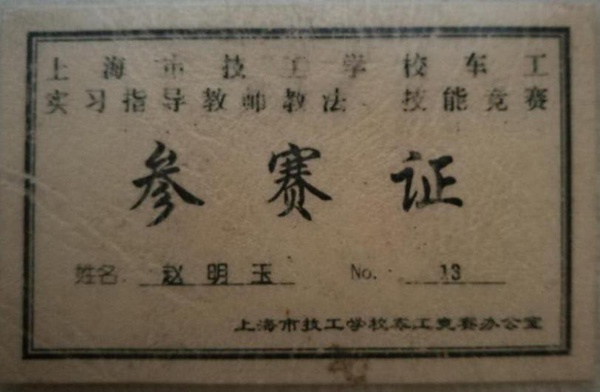 上海市技工学校车工
实习指导教师教法、技能竞赛
参赛证
姓名 赵明玉 No. 13
上海市技工学校车工竞赛办公室